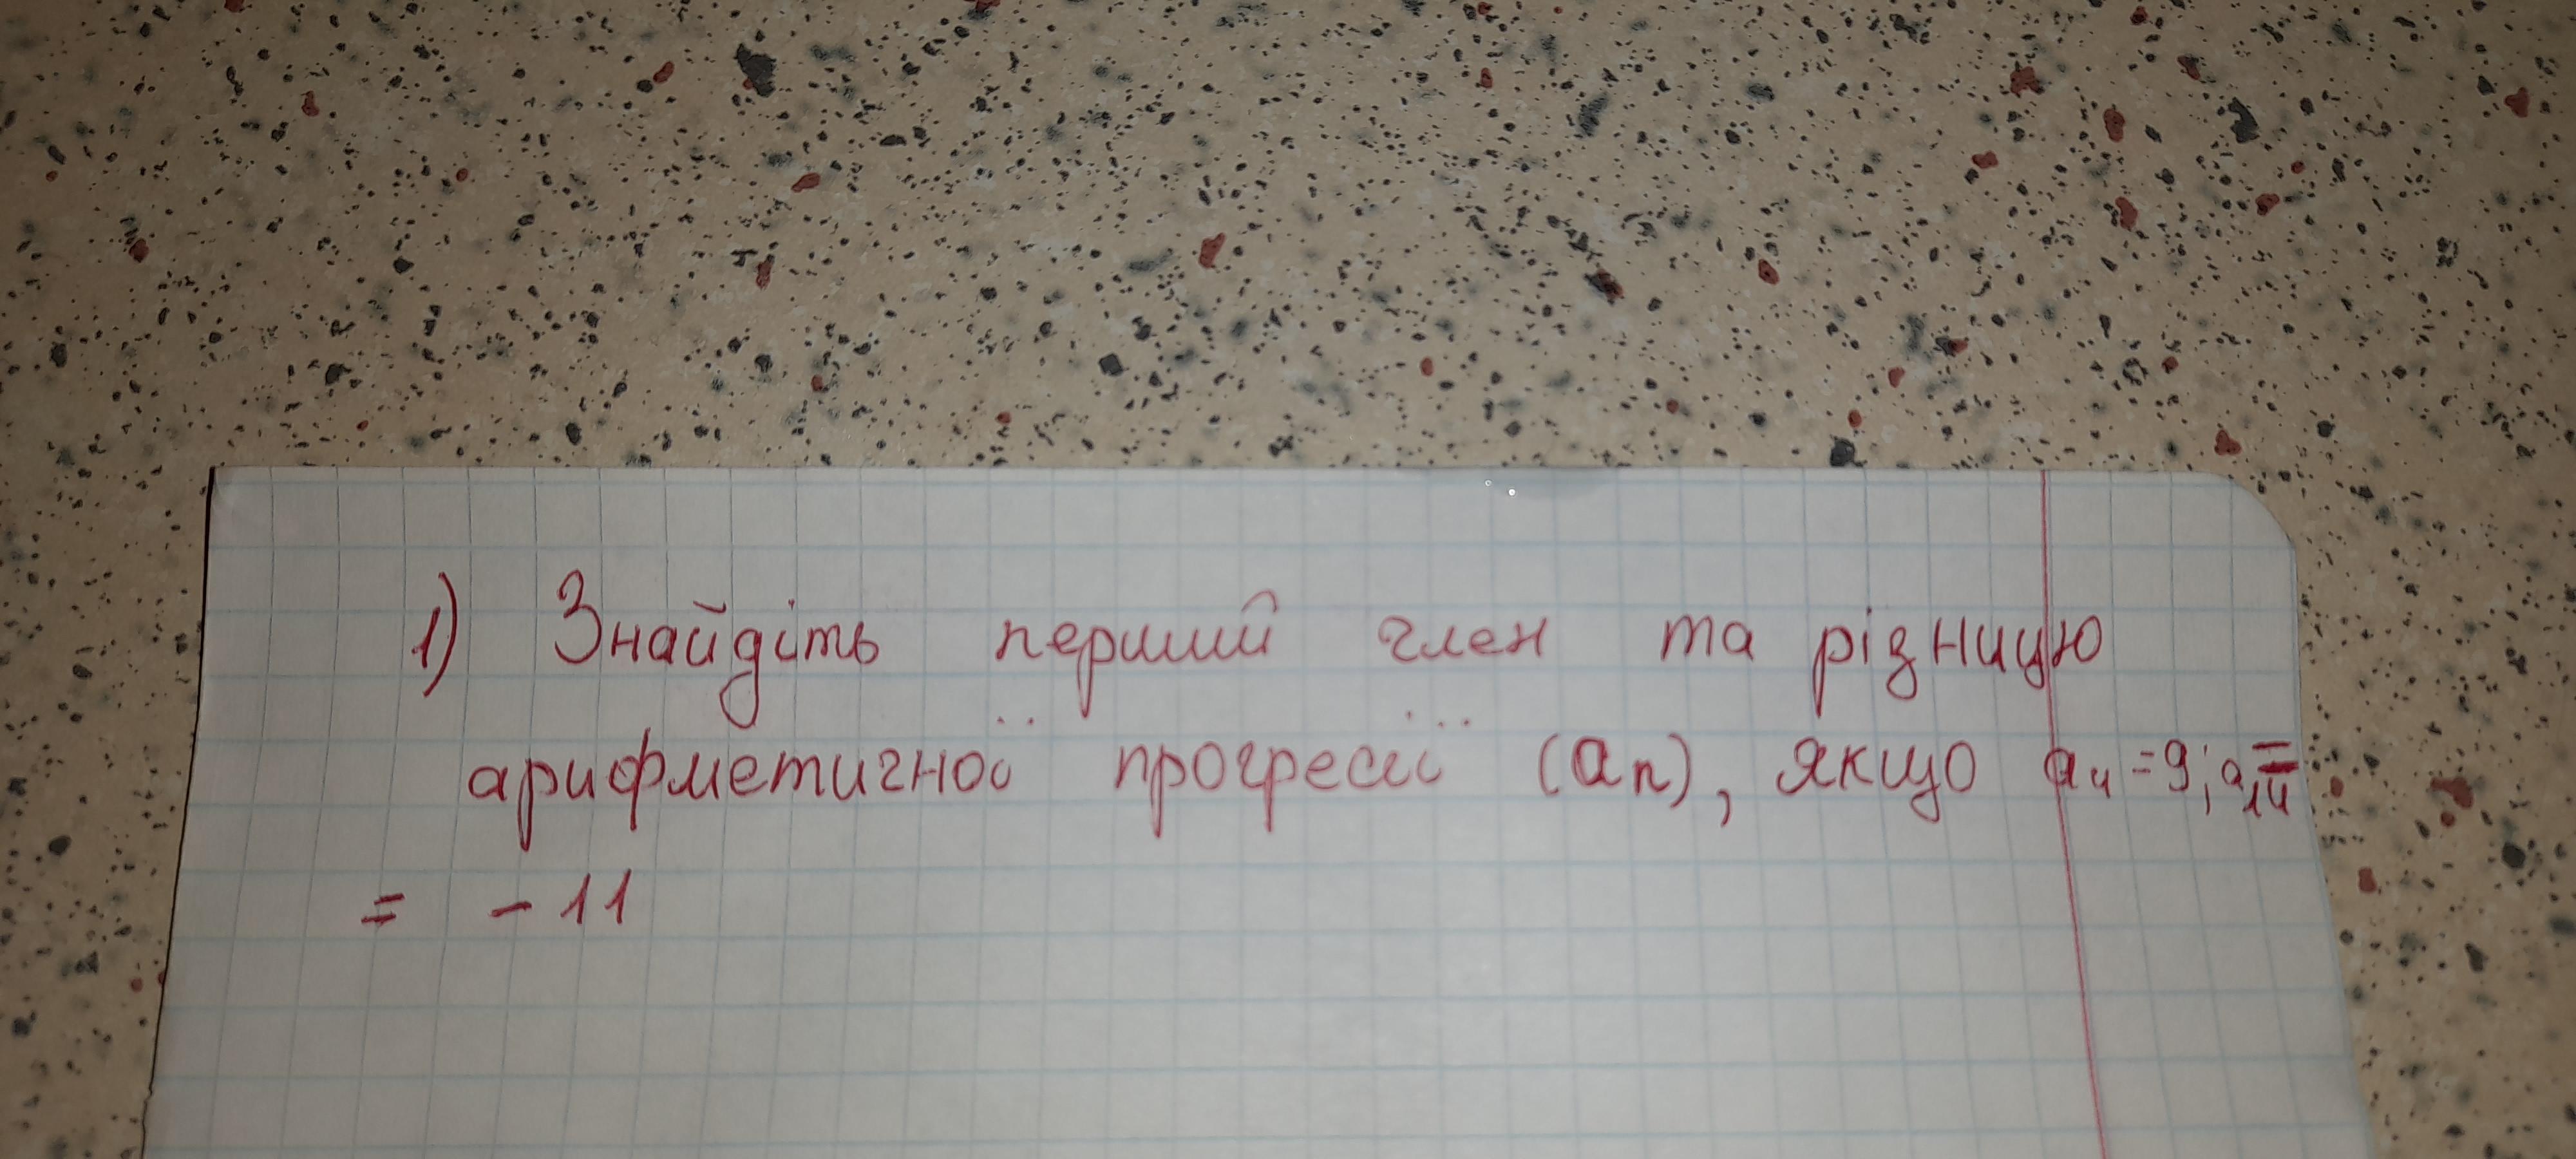 1) Знайдіть перший член та різницю
арифметичної прогресії (an), якщо a4 = 9; a14 =
= - 11